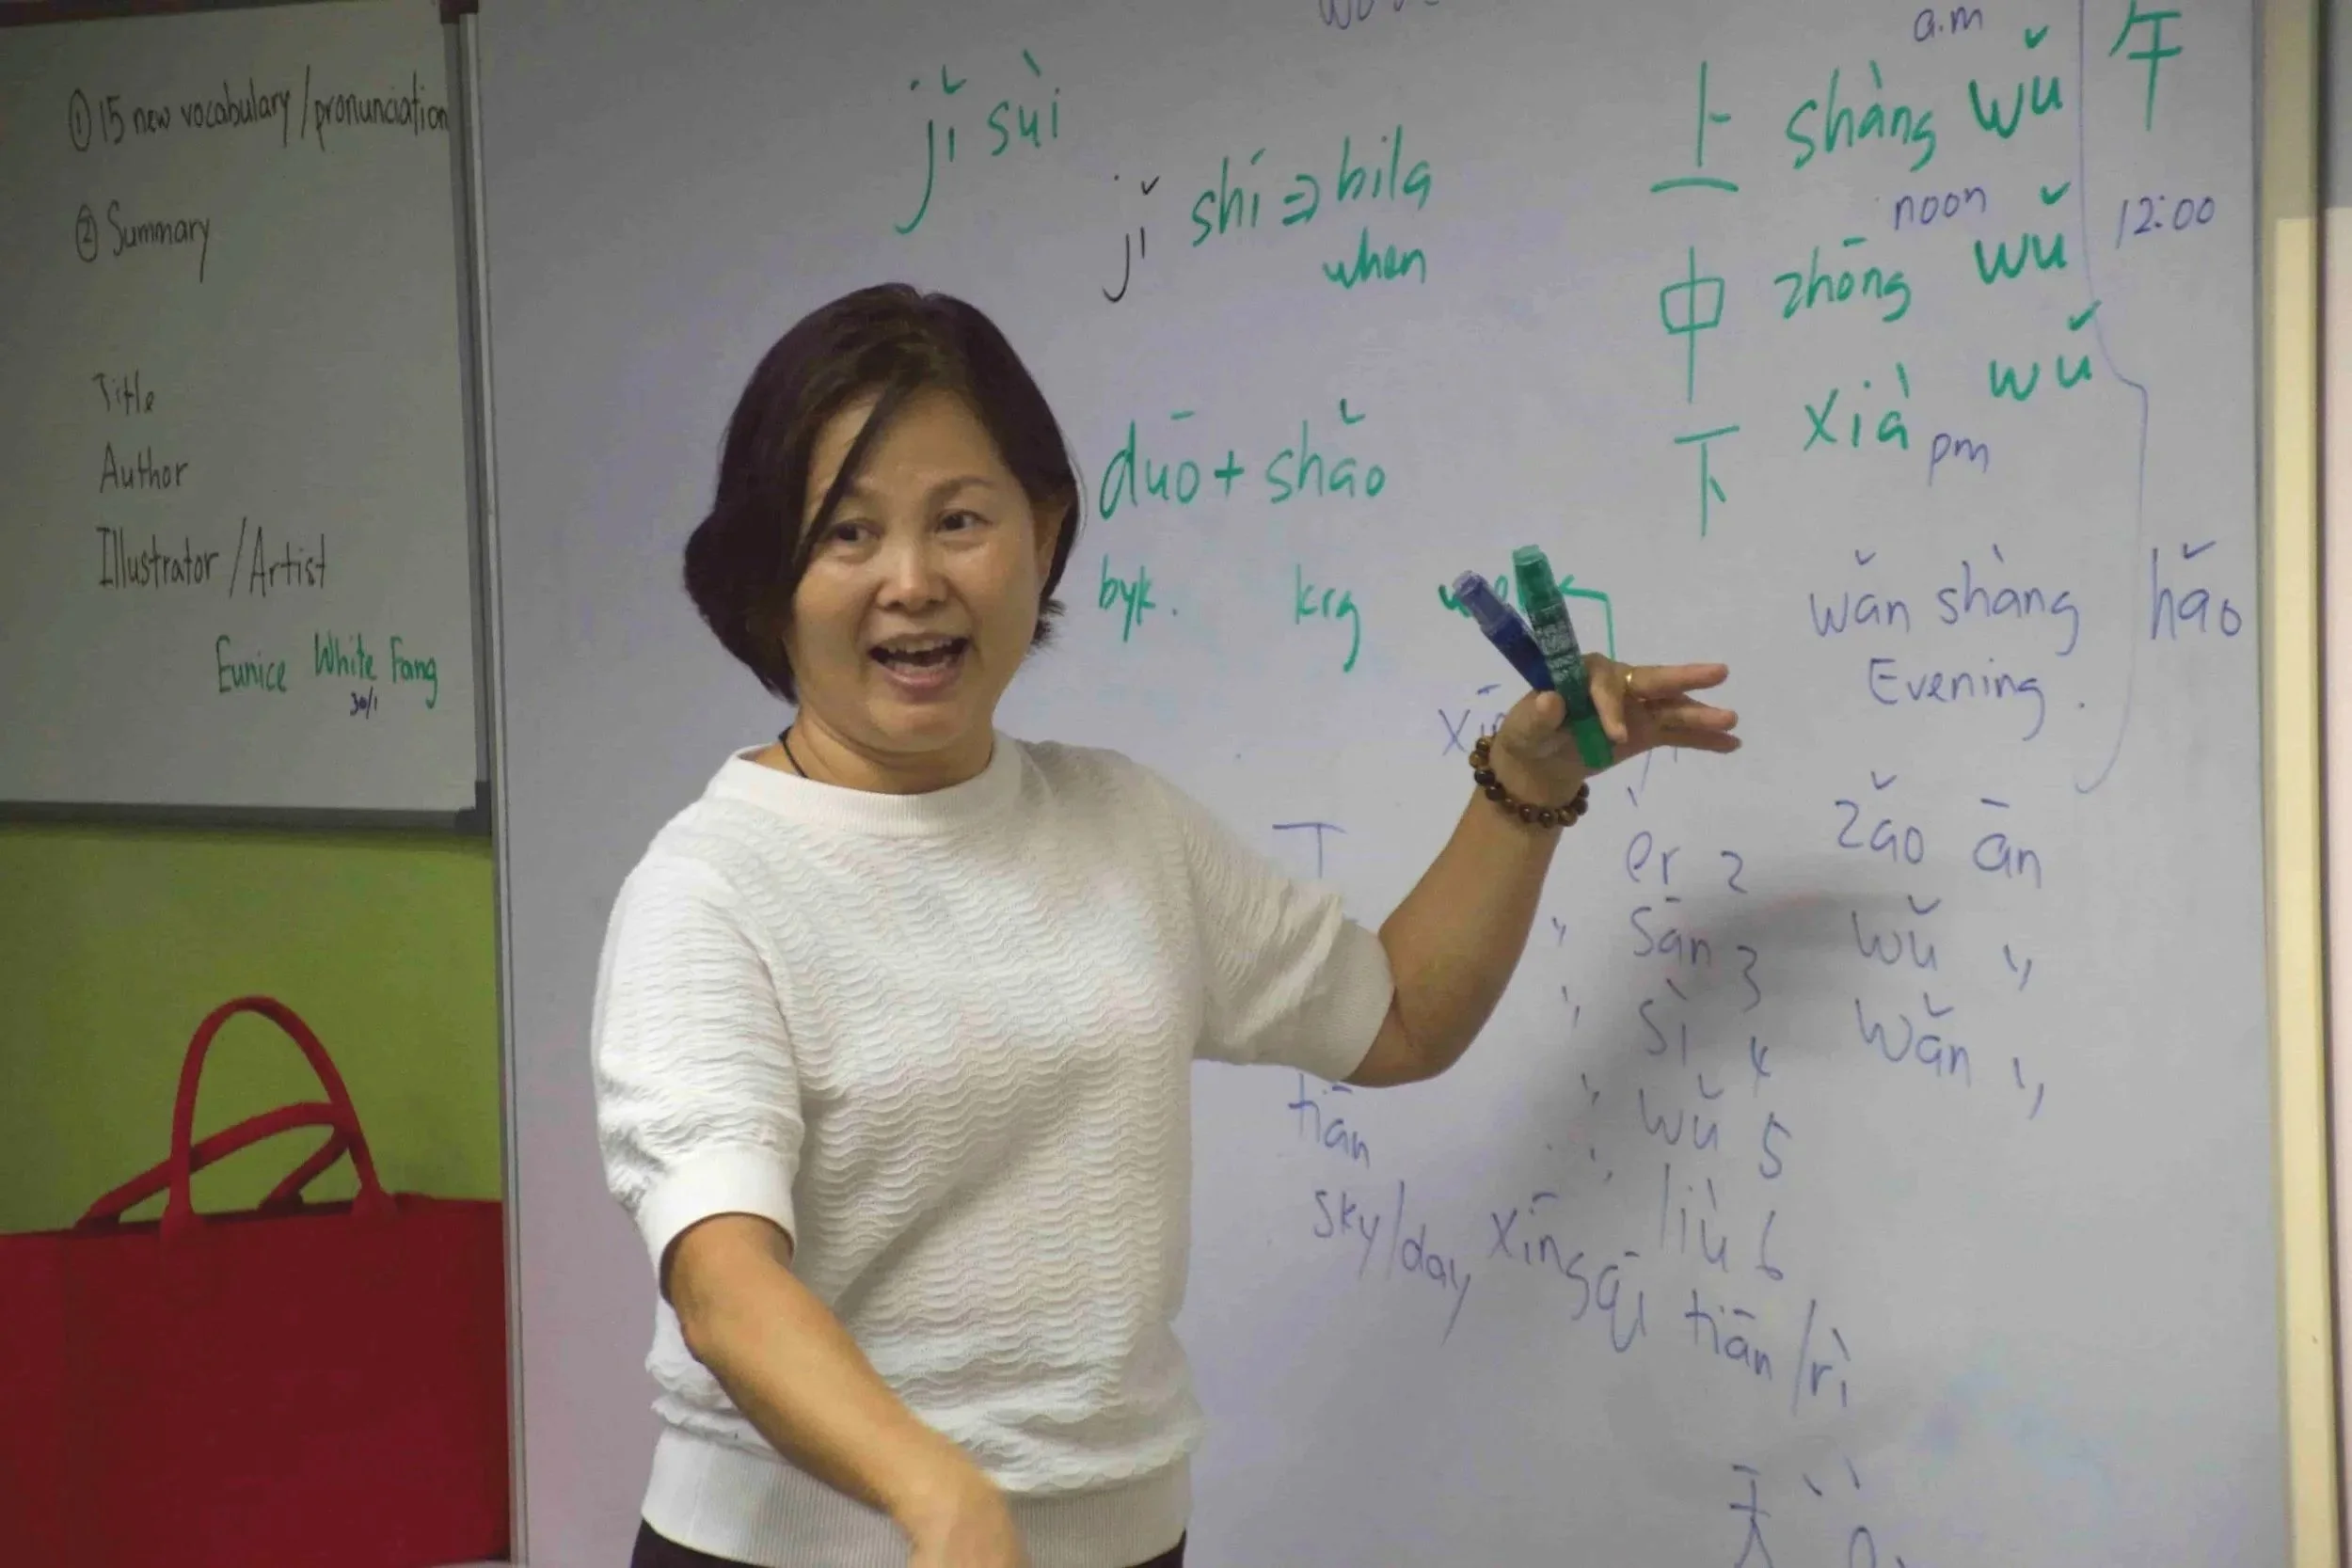 ① 15 new vocabulary/pronunciation
② Summary
Title
Author
Illustrator/Artist
Eunice White Fang
30/1
jǐ suì
jǐ shí ⇒ bila
when
duō + shǎo
byk. krg
a.m
上 shàng wǔ
午
noon
中 zhōng wǔ
12:00
下 xià wǔ
pm
wǎn shàng hǎo
Evening.
zǎo ān
wǔ "
wǎn "
èr 2
" sān 3
" sì 4
" wǔ 5
" liù 6
tiān
sky/day
xīngqī tiān/rì
天